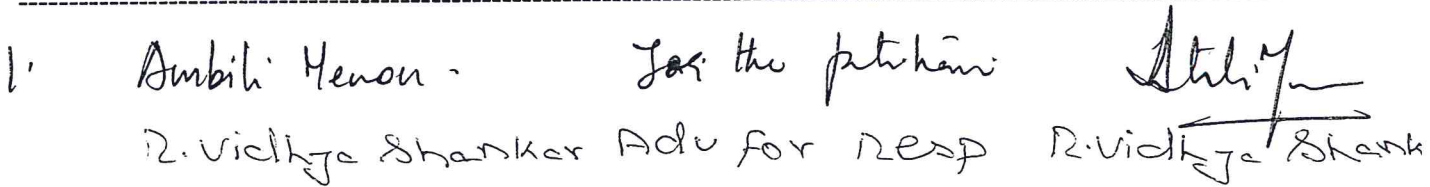 1. Ambili Menon. For the petitioner
R. Vidhya Shankar Adv for Resp R. Vidhya Shank